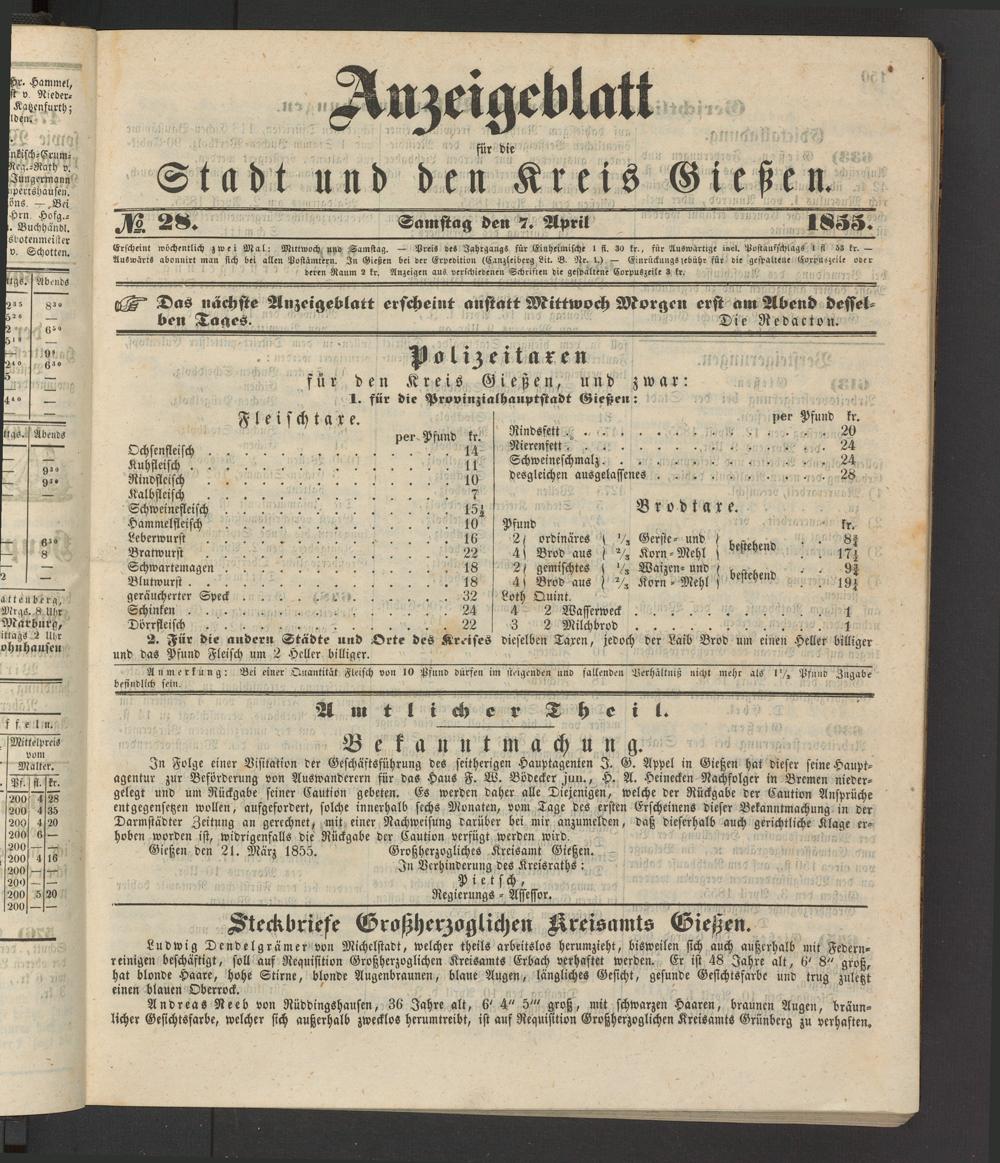 Hr. Hammel,
v. Nieder-
Katzenfurth;
lden.
nkisch-Crum-
Reg.-Rath v.
Jungermann
ppertshausen.
öns. — Bei
Hrn. Hofg.-
. Buchhändl.
sbotenmeister
v. Schotten.
tgs. Abends
8³⁰
—
6⁵⁰
—
6³⁰
—
—
ttgs. Abends
—
9³⁰
9³⁰
—
6³⁰
8
—
—
attenberg,
Mrgs. 8 Uhr
Marburg,
ittags 2 Uhr
ohnhausen
ffeln.
Mittelpreis
vom
Malter.
Pf. fl. kr.
200 4 28
200 4 35
200 4 20
200 6 —
200 — —
200 4 16
200 — —
200 — —
200 5 20
200 — —
Anzeigeblatt
für die
Stadt und den Kreis Gießen.
№ 28. Samstag den 7. April 1855.
Erscheint wöchentlich zwei Mal: Mittwoch und Samstag. — Preis des Jahrgangs für Einheimische 1 fl. 30 kr., für Auswärtige incl. Postaufschlags 1 fl 53 kr. —
Auswärts abonnirt man sich bei allen Postämtern. In Gießen bei der Expedition (Canzleiberg Lit. B. Nr. 1.) — Einrückungsgebühr für die gespaltene Corpuszeile oder
deren Raum 2 kr. Anzeigen aus verschiedenen Schriften die gespaltene Corpuszeile 3 kr.
☞ Das nächste Anzeigeblatt erscheint anstatt Mittwoch Morgen erst am Abend dessel-
ben Tages. Die Redacton.
Polizeitaxen
für den Kreis Gießen, und zwar:
1. für die Provinzialhauptstadt Gießen:
Fleischtaxe.
per Pfund kr.
Ochsenfleisch . . . . . . . . 14
Kuhfleisch . . . . . . . . 11
Rindfleisch . . . . . . . . 10
Kalbfleisch . . . . . . . . 7
Schweinefleisch . . . . . . . . 15½
Hammelfleisch . . . . . . . . 10
Leberwurst . . . . . . . . 16
Bratwurst . . . . . . . . 22
Schwartemagen . . . . . . . . 18
Blutwurst . . . . . . . . 18
geräucherter Speck . . . . . . . . 32
Schinken . . . . . . . . 24
Dörrfleisch . . . . . . . . 22
per Pfund kr.
Rindsfett . . . . . . . . 20
Nierenfett . . . . . . . . 24
Schweineschmalz . . . . . . . . 24
desgleichen ausgelassenes . . . . . . 28
Brodtaxe.
Pfund kr.
2 ordinäres ⅓ Gerste- und bestehend . . 8¾
4 Brod aus ⅔ Korn-Mehl . . 17½
2 gemischtes ⅓ Waizen- und bestehend . . 9¾
4 Brod aus ⅔ Korn-Mehl . . 19½
Loth Quint.
4 2 Wasserweck . . . . . . 1
3 2 Milchbrod . . . . . . 1
2. Für die andern Städte und Orte des Kreises dieselben Taxen, jedoch der Laib Brod um einen Heller billiger
und das Pfund Fleisch um 2 Heller billiger.
Anmerkung: Bei einer Quantität Fleisch von 10 Pfund dürfen im steigenden und fallenden Verhältniß nicht mehr als 1½ Pfund Zugabe
befindlich sein.
Amtlicher Theil.
Bekanntmachung.
In Folge einer Visitation der Geschäftsführung des seitherigen Hauptagenten J. G. Appel in Gießen hat dieser seine Haupt-
agentur zur Beförderung von Auswanderern für das Haus F. W. Bödecker jun., H. A. Heinecken Nachfolger in Bremen nieder-
gelegt und um Rückgabe seiner Caution gebeten. Es werden daher alle Diejenigen, welche der Rückgabe der Caution Ansprüche
entgegensetzen wollen, aufgefordert, solche innerhalb sechs Monaten, vom Tage des ersten Erscheinens dieser Bekanntmachung in der
Darmstädter Zeitung an gerechnet, mit einer Nachweisung darüber bei mir anzumelden, daß dieserhalb auch gerichtliche Klage er-
hoben worden ist, widrigenfalls die Rückgabe der Caution verfügt werden wird.
Gießen den 21. März 1855. Großherzogliches Kreisamt Gießen.
In Verhinderung des Kreisraths:
Pietsch,
Regierungs-Assessor.
Steckbriefe Großherzoglichen Kreisamts Gießen.
Ludwig Dendelgrämer von Michelstadt, welcher theils arbeitslos herumzieht, bisweilen sich auch außerhalb mit Federn-
reinigen beschäftigt, soll auf Requisition Großherzoglichen Kreisamts Erbach verhaftet werden. Er ist 48 Jahre alt, 6' 8" groß,
hat blonde Haare, hohe Stirne, blonde Augenbraunen, blaue Augen, längliches Gesicht, gesunde Gesichtsfarbe und trug zuletzt
einen blauen Oberrock.
Andreas Reeb von Rüddingshausen, 36 Jahre alt, 6' 4" 5''' groß, mit schwarzen Haaren, braunen Augen, bräun-
licher Gesichtsfarbe, welcher sich außerhalb zwecklos herumtreibt, ist auf Requisition Großherzoglichen Kreisamts Grünberg zu verhaften.